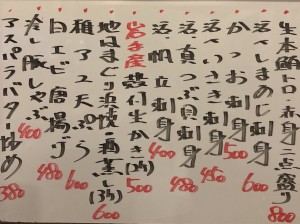 生本鮪トロ・赤身二点盛り
活〆しまのじ刺身
かつお刺身 500
活〆いさき刺身 450
活真つぶ刺身 480
活帆立刺身 400
岩手産殻付生かき(1ヶ) 500
地はまぐり浜焼・酒蒸し(3ヶ) 600
稚アユ天ぷら 600
白エビ唐揚げ 480
冷し豚しゃぶ 400
アスパラバター炒め 380